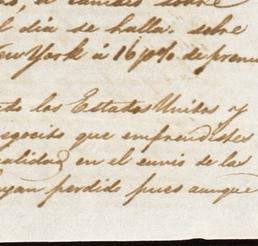 o cambio sobre
l dia se halla sobre
New York á 16 p% de premi
ndo los Estados Unidos y
negocito que emprendistes
calidad en el envio de las
hayan perdido pues aunque